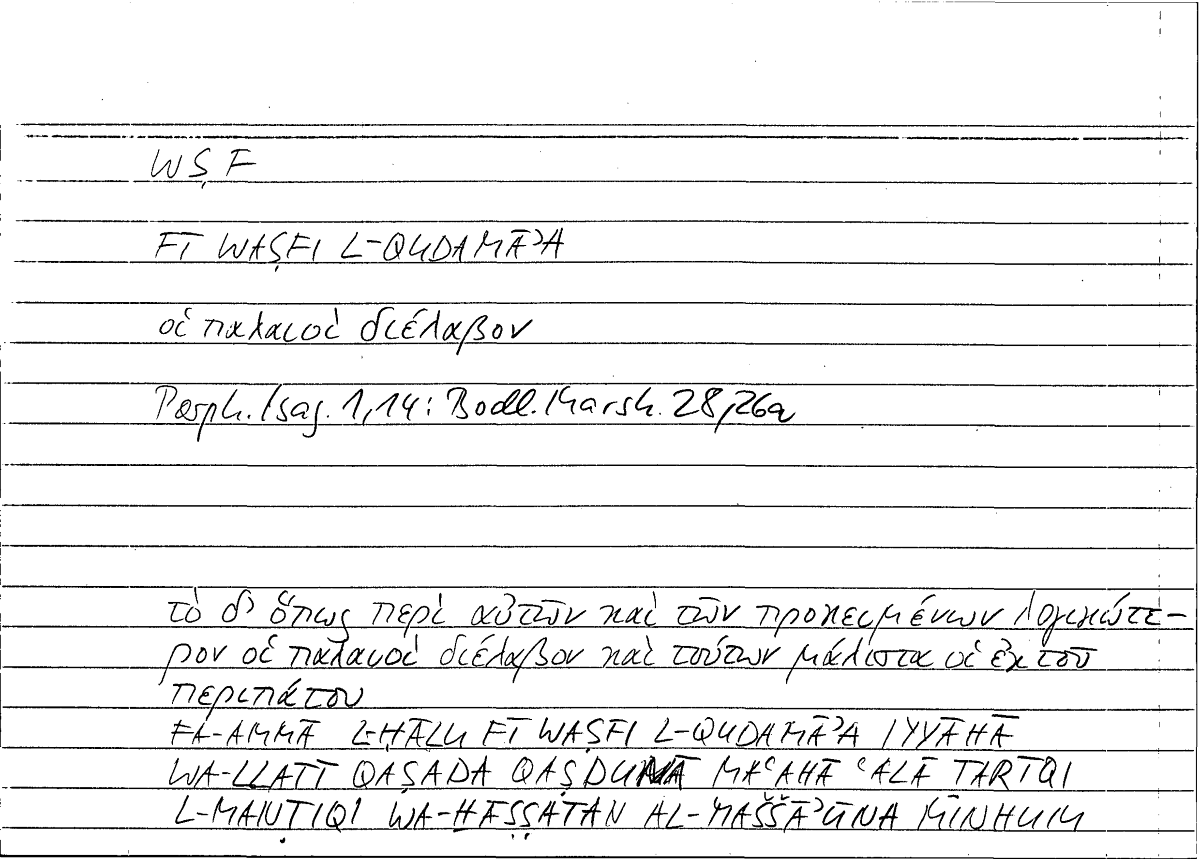 WṢF
FĪ WAṢFI L-QUDAMĀʾA
οἱ παλαιοὶ διέλαβον
Porph. Isag. 1,14: Bodl. Marsh. 28,26a
τὸ δʼ ὅπως περὶ αὐτῶν καὶ τῶν προκειμένων λογικώτε-
ρον οἱ παλαιοὶ διέλαβον καὶ τούτων μάλιστα οἱ ἐκ τοῦ
περιπάτου
FA-AMMĀ L-ḤĀLU FĪ WAṢFI L-QUDAMĀʾA IYYĀHĀ
WA-LLATĪ QAṢADA QAṢDUNĀ MAʿAHĀ ʿALĀ TARĪQI
L-MANṬIQI WA-ḪĀṢṢATAN AL-MAŠŠĀʾŪNA MINHUM